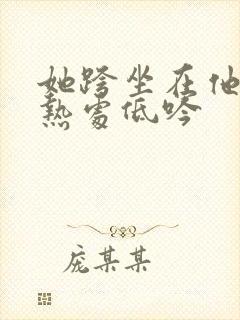 她跨坐在他
熱處低吟
庞某某